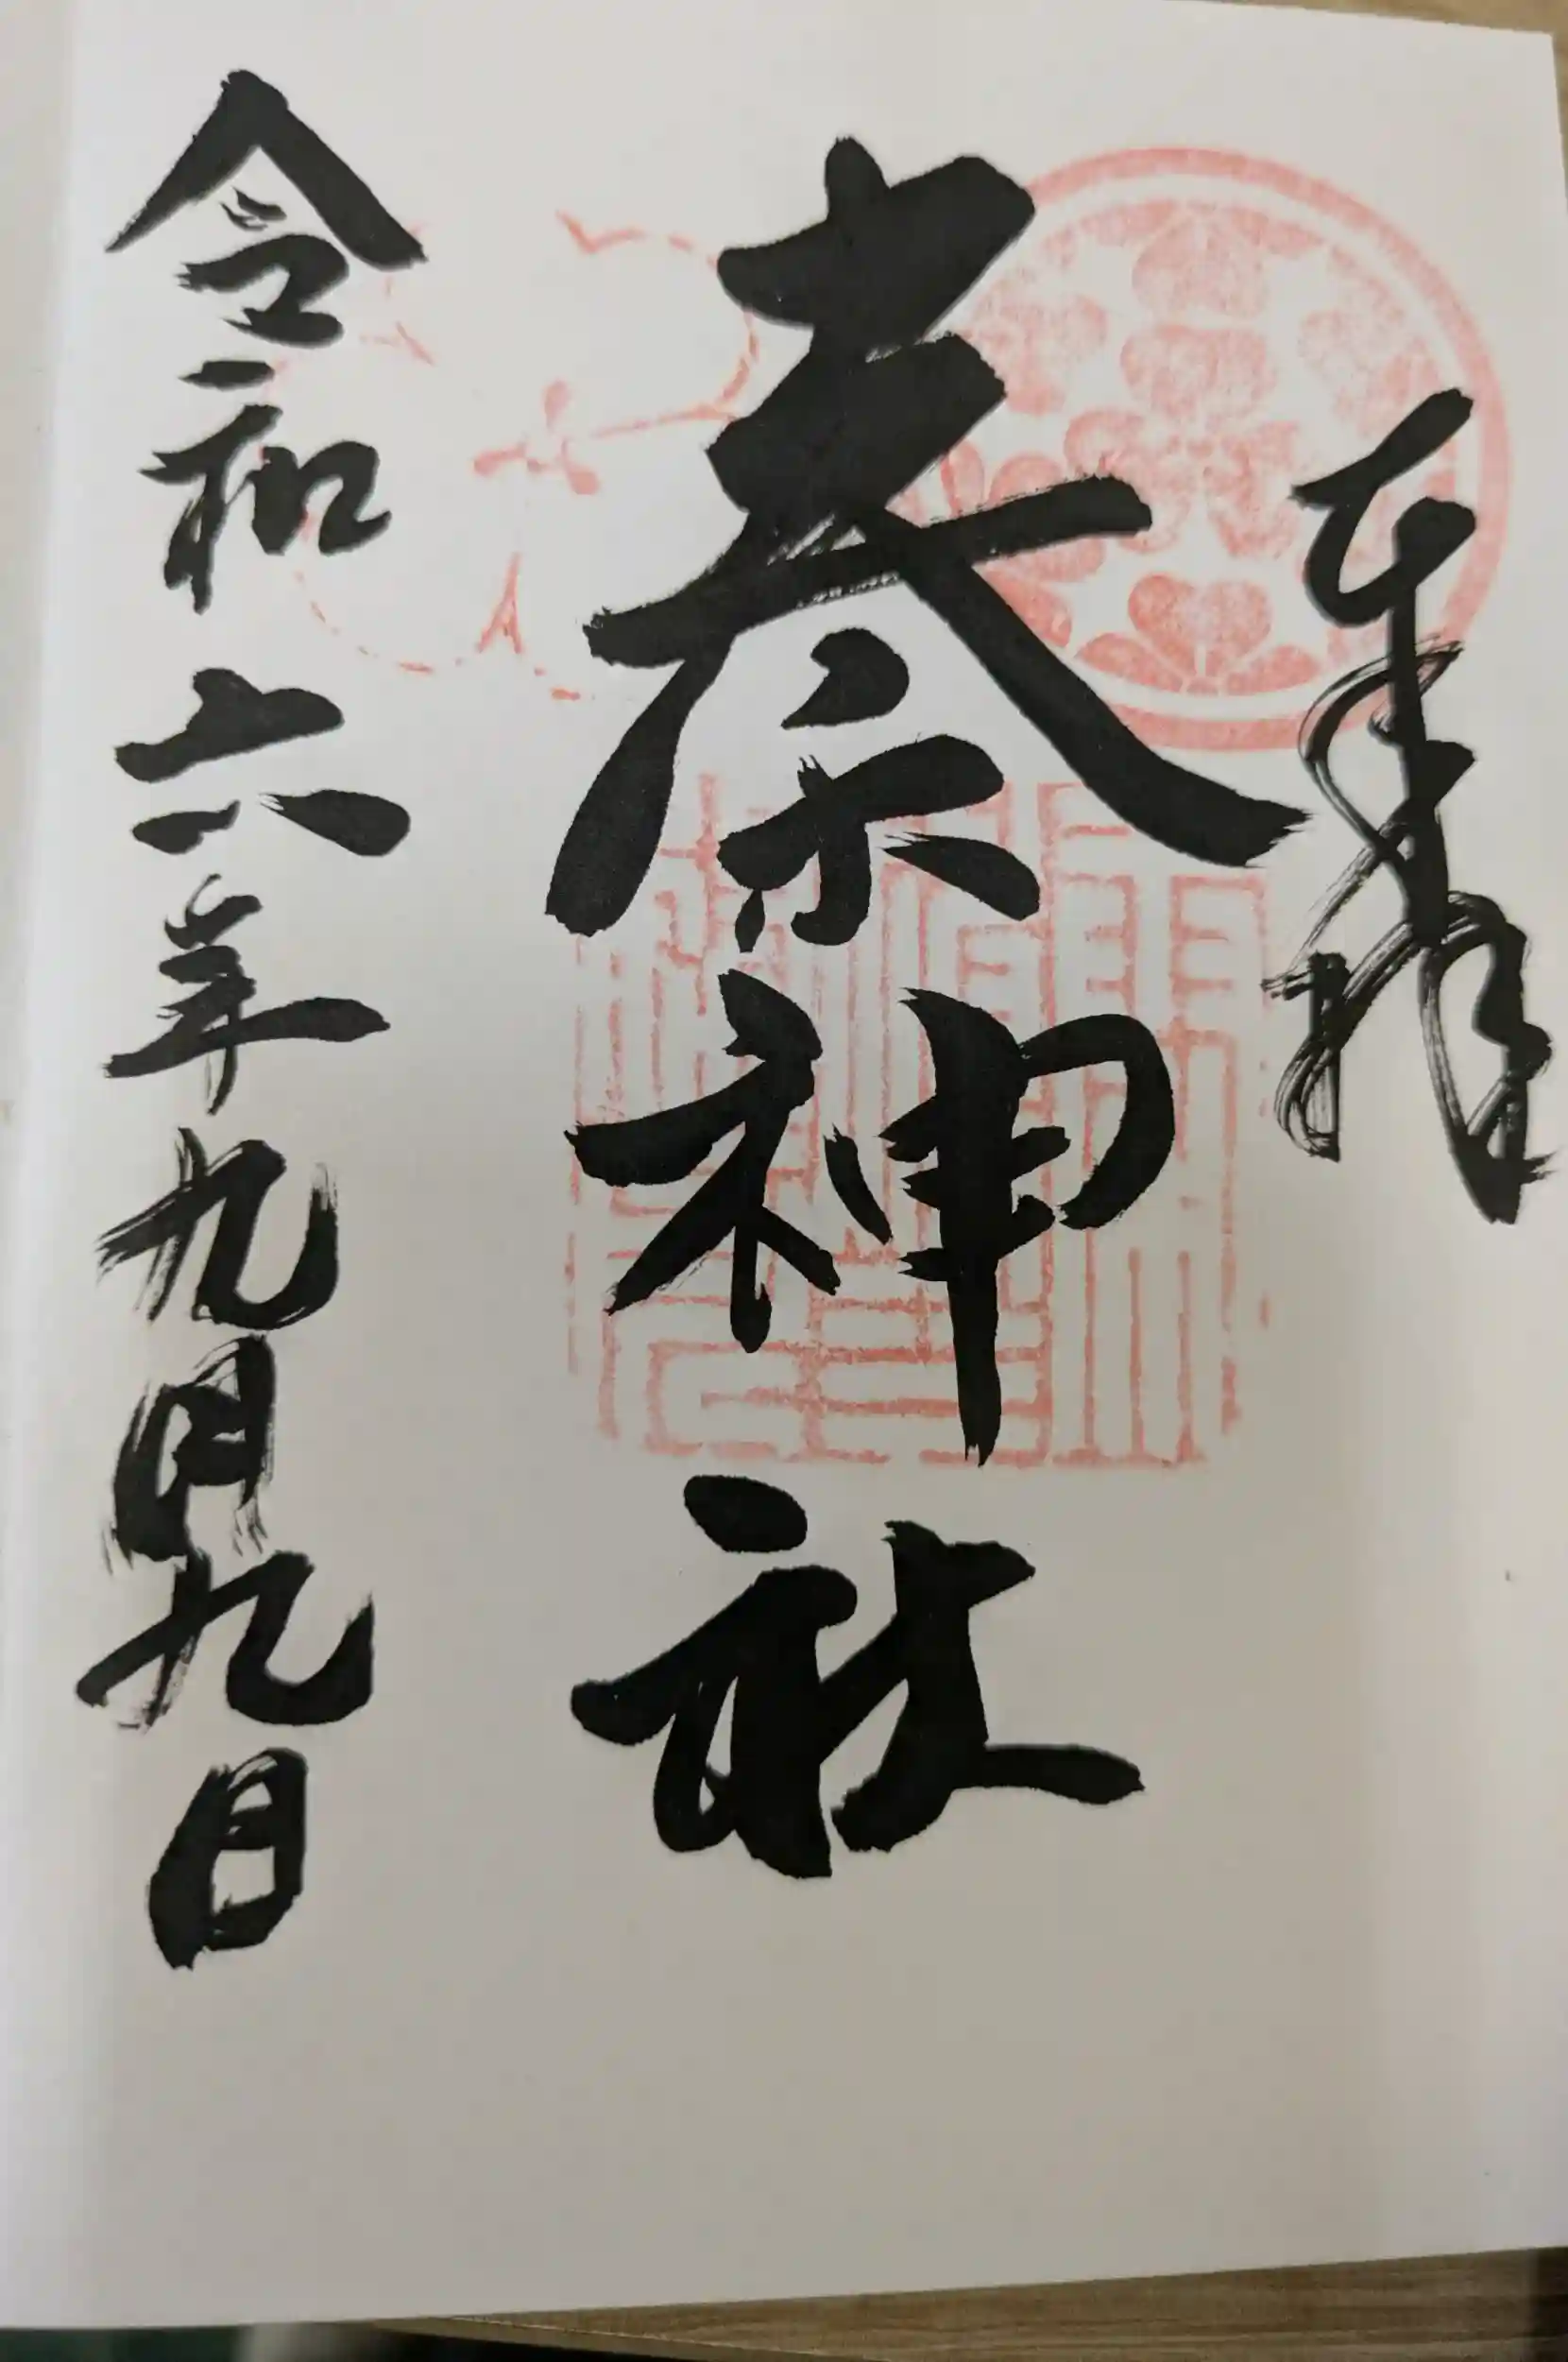 奉拝
秦神社
令和六年九月九日